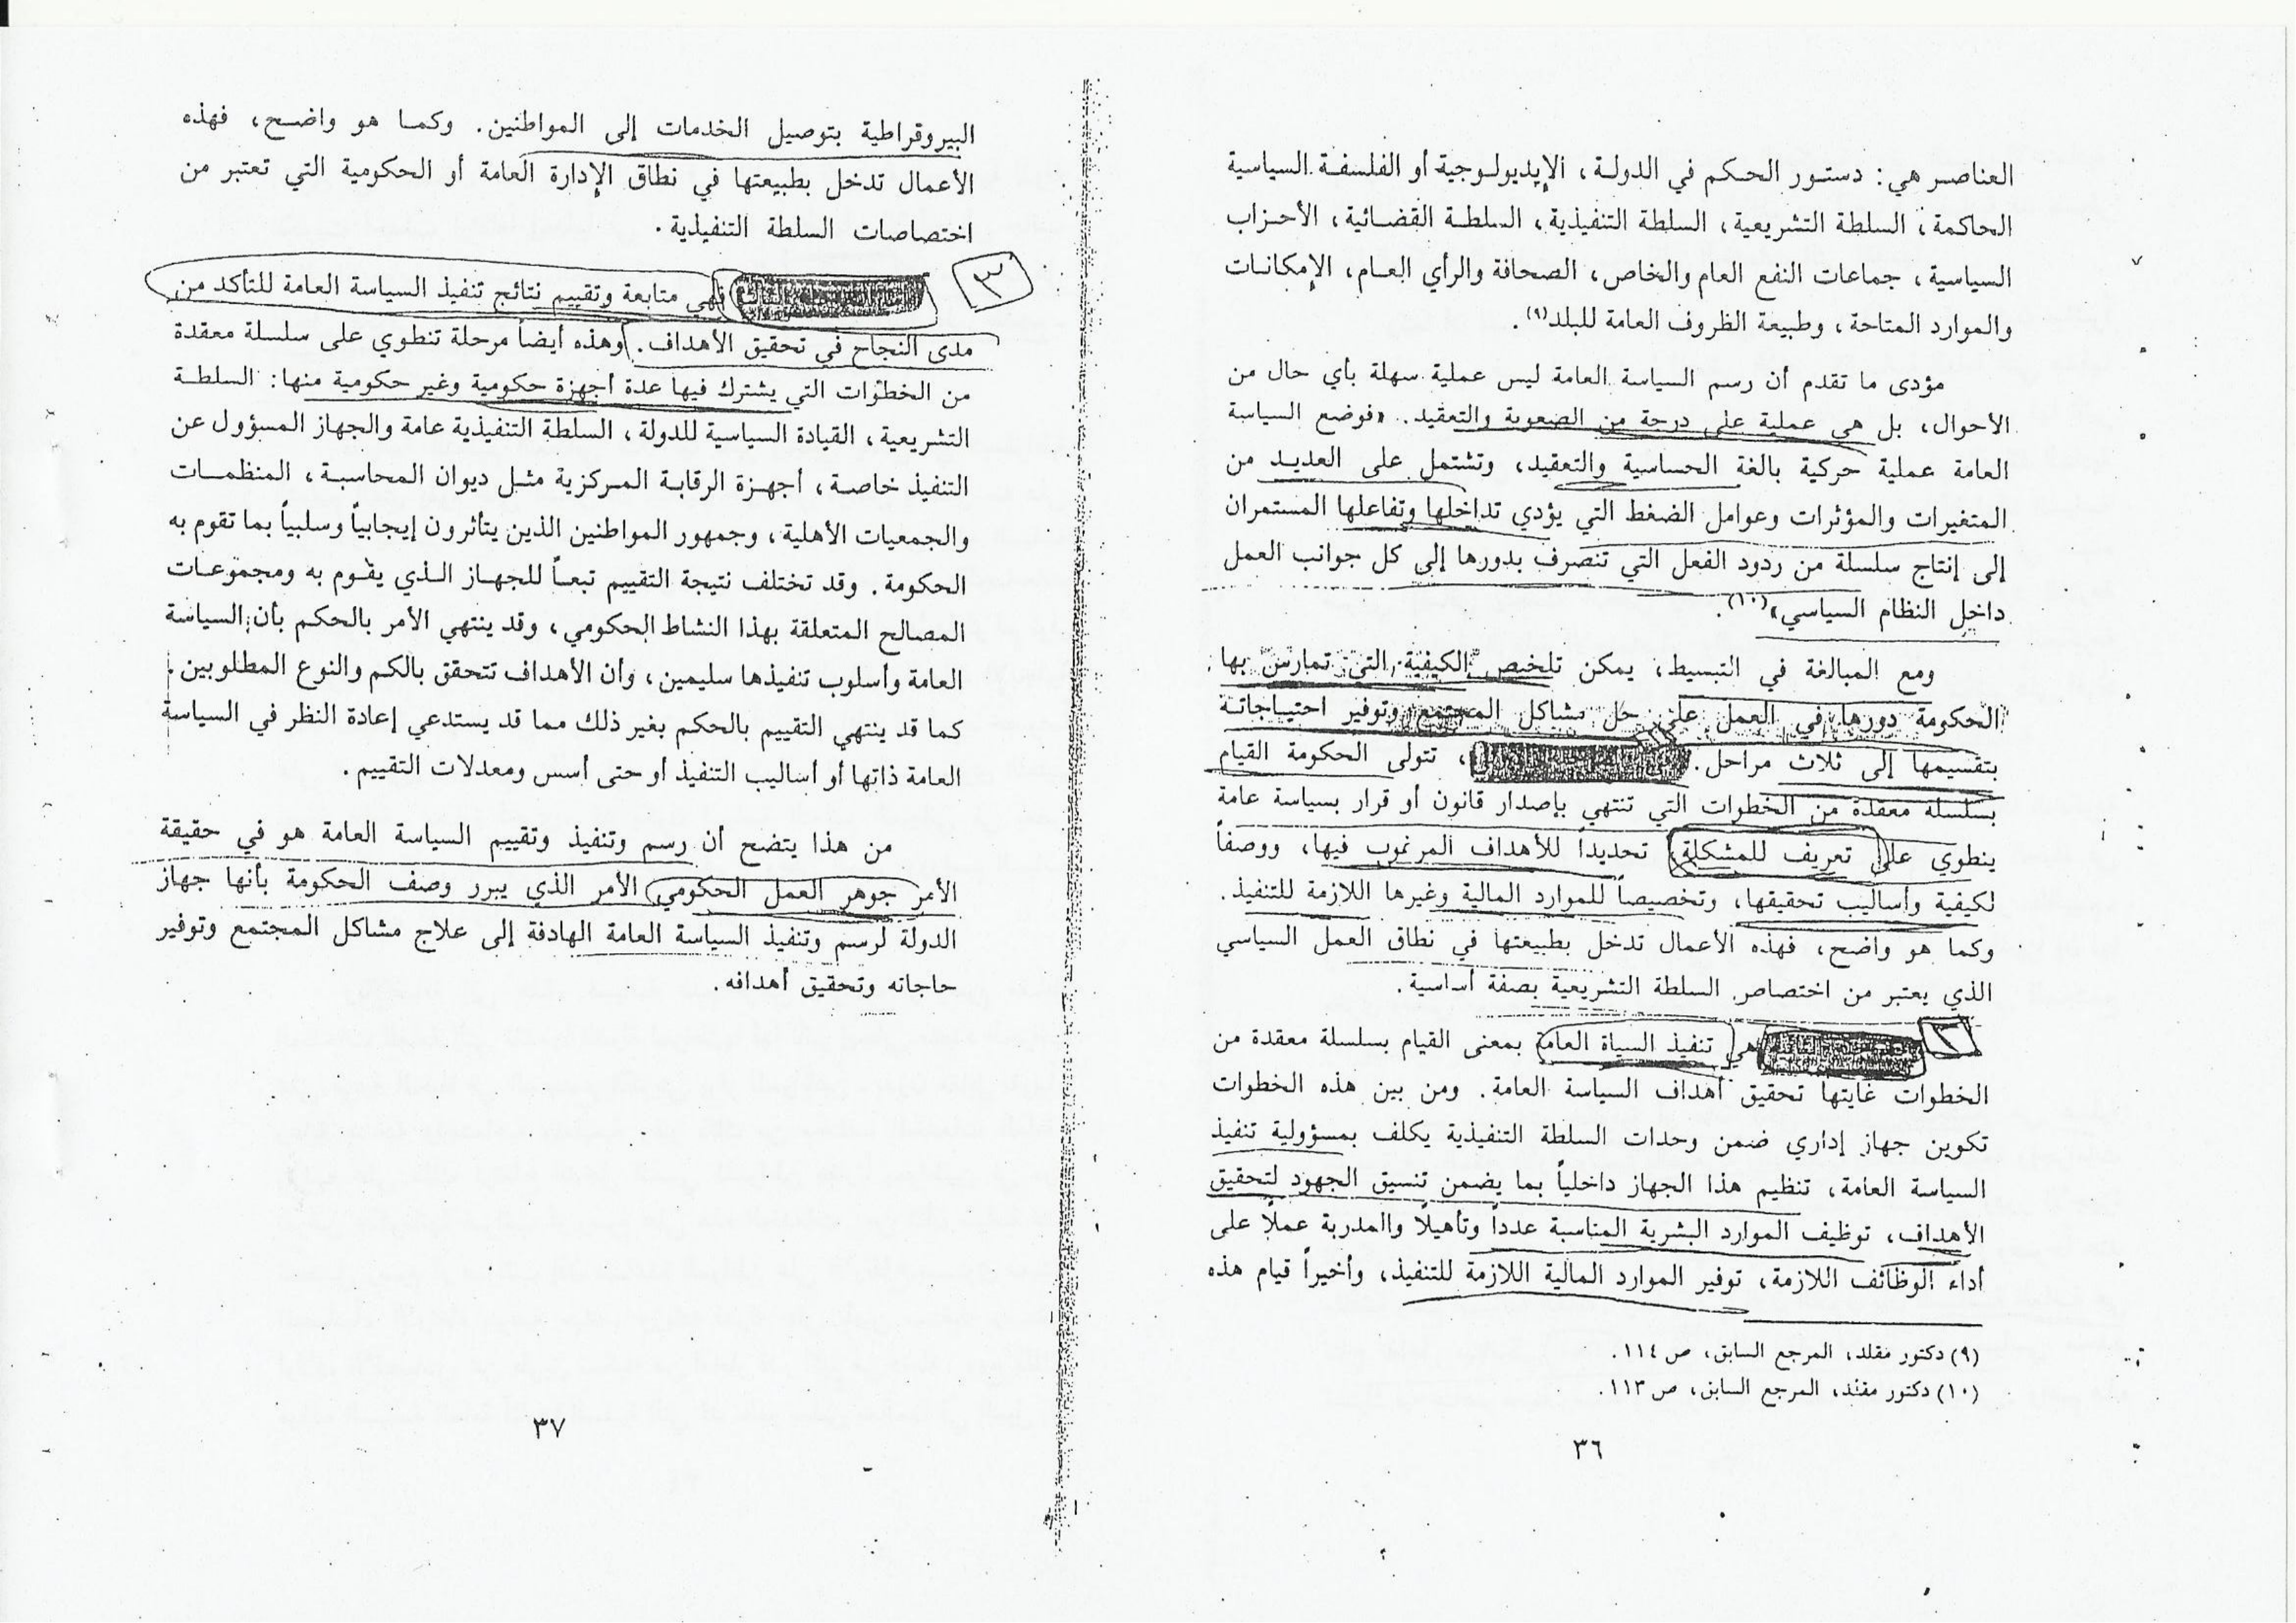 العناصر هي: دستور الحكم في الدولة، الإيديولوجية أو الفلسفة السياسية
الحاكمة، السلطة التشريعية، السلطة التنفيذية، السلطة القضائية، الأحزاب
السياسية، جماعات النفع العام والخاص، الصحافة والرأي العام، الإمكانات
والموارد المتاحة، وطبيعة الظروف العامة للبلد(٩).
مؤدى ما تقدم أن رسم السياسة العامة ليس عملية سهلة بأي حال من
الأحوال، بل هي عملية على درجة من الصعوبة والتعقيد. «فوضع السياسة
العامة عملية حركية بالغة الحساسية والتعقيد، وتشتمل على العديد من
المتغيرات والمؤثرات وعوامل الضغط التي يؤدي تداخلها وتفاعلها المستمران
إلى إنتاج سلسلة من ردود الفعل التي تنصرف بدورها إلى كل جوانب العمل
داخل النظام السياسي»(١٠).
ومع المبالغة في التبسيط، يمكن تلخيص الكيفية التي تمارس بها
الحكومة دورها في العمل على حل مشاكل المجتمع وتوفير احتياجاته
بتقسيمها إلى ثلاث مراحل. ، تتولى الحكومة القيام
بسلسلة معقدة من الخطوات التي تنتهي بإصدار قانون أو قرار بسياسة عامة
ينطوي على تعريف للمشكلة، تحديداً للأهداف المرغوب فيها، ووصفاً
لكيفية وأساليب تحقيقها، وتخصيصاً للموارد المالية وغيرها اللازمة للتنفيذ.
وكما هو واضح، فهذه الأعمال تدخل بطبيعتها في نطاق العمل السياسي
الذي يعتبر من اختصاص السلطة التشريعية بصفة أساسية.
٢ هي تنفيذ السياة العامة بمعنى القيام بسلسلة معقدة من
الخطوات غايتها تحقيق أهداف السياسة العامة. ومن بين هذه الخطوات
تكوين جهاز إداري ضمن وحدات السلطة التنفيذية يكلف بمسؤولية تنفيذ
السياسة العامة، تنظيم هذا الجهاز داخلياً بما يضمن تنسيق الجهود لتحقيق
الأهداف، توظيف الموارد البشرية المناسبة عدداً وتأهيلاً والمدربة عملاً على
أداء الوظائف اللازمة، توفير الموارد المالية اللازمة للتنفيذ، وأخيراً قيام هذه
(٩) دكتور مقلد، المرجع السابق، ص ١١٤.
(١٠) دكتور مقلد، المرجع السابق، ص ١١٣.
٣٦
البيروقراطية بتوصيل الخدمات إلى المواطنين. وكما هو واضح، فهذه
الأعمال تدخل بطبيعتها في نطاق الإدارة العامة أو الحكومية التي تعتبر من
اختصاصات السلطة التنفيذية.
٣ فهي متابعة وتقييم نتائج تنفيذ السياسة العامة للتأكد من
مدى النجاح في تحقيق الأهداف. وهذه أيضاً مرحلة تنطوي على سلسلة معقدة
من الخطوات التي يشترك فيها عدة أجهزة حكومية وغير حكومية منها: السلطة
التشريعية، القيادة السياسية للدولة، السلطة التنفيذية عامة والجهاز المسؤول عن
التنفيذ خاصة، أجهزة الرقابة المركزية مثل ديوان المحاسبة، المنظمات
والجمعيات الأهلية، وجمهور المواطنين الذين يتأثرون إيجابياً وسلبياً بما تقوم به
الحكومة. وقد تختلف نتيجة التقييم تبعاً للجهاز الذي يقوم به ومجموعات
المصالح المتعلقة بهذا النشاط الحكومي، وقد ينتهي الأمر بالحكم بأن السياسة
العامة وأسلوب تنفيذها سليمين، وأن الأهداف تتحقق بالكم والنوع المطلوبين.
كما قد ينتهي التقييم بالحكم بغير ذلك مما قد يستدعي إعادة النظر في السياسة
العامة ذاتها أو أساليب التنفيذ أو حتى أسس ومعدلات التقييم.
من هذا يتضح أن رسم وتنفيذ وتقييم السياسة العامة هو في حقيقة
الأمر جوهر العمل الحكومي، الأمر الذي يبرر وصف الحكومة بأنها جهاز
الدولة لرسم وتنفيذ السياسة العامة الهادفة إلى علاج مشاكل المجتمع وتوفير
حاجاته وتحقيق أهدافه.
٣٧